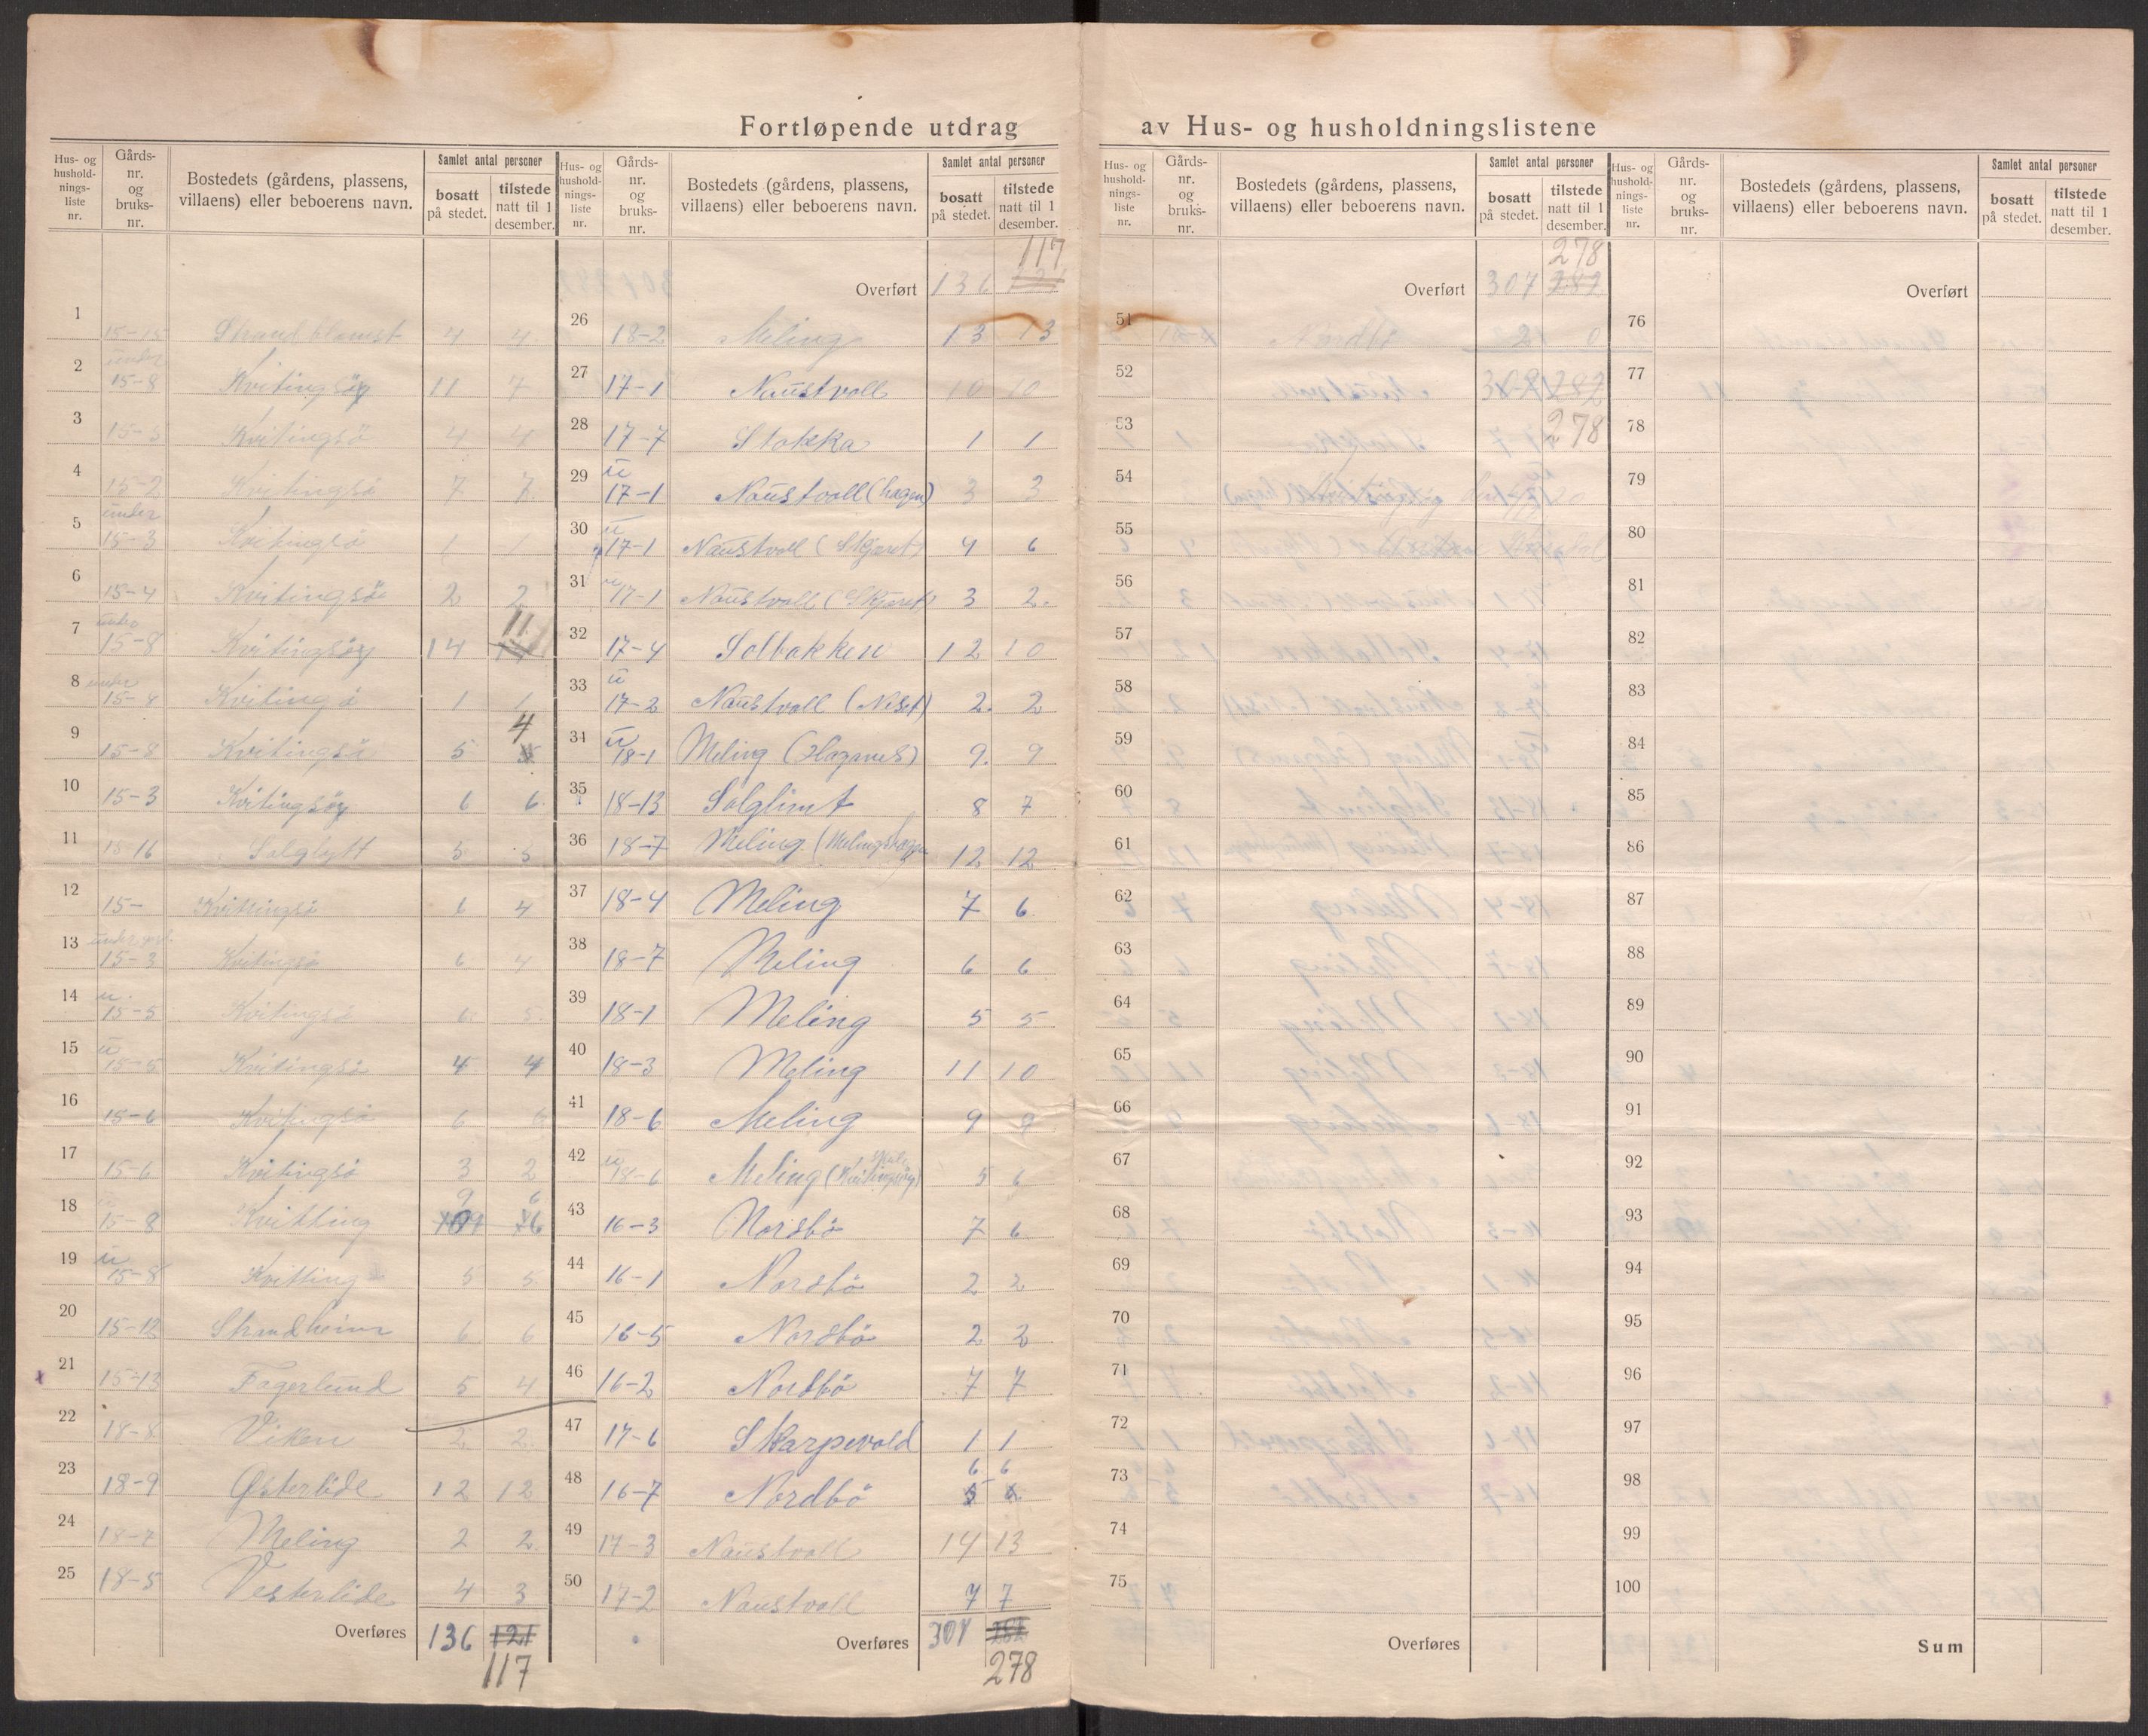 Fortløpende utdrag av Hus- og husholdningslistene
Hus- og husholdningsliste nr. | Gårds-nr. og bruks-nr. | Bostedets (gårdens, plassens, villaens) eller beboerens navn. | Samlet antal personer bosatt på stedet. | tilstede natt til 1 desember.
1 15-15 4 4
2 under 15-8 Kvitingsøy 11 7
3 15-5 Kvitingsö 4 4
4 15-2 Kvitingsö 7 7
5 under 15-3 Kvitingsö 1 1
6 15-4 Kvitingsö 2 2
7 under 15-8 Kvitingsøy 14 11
8 under 15-4 Kvitingsö 1 1
9 15-8 Kvitingsö 5 4
10 15-3 Kvitingsøy 6 6
11 15 16 Solglytt 5 5
12 15- Kvitingsö 6 4
13 under 15-3 Kvitingsö 6 4
14 u. 15-5 Kvitingsö 6 5
15 u 15-5 Kvitingsö 4 4
16 15-6 Kvitingsö 6 6
17 15-6 Kvitingsö 3 2
18 15-8 Kvitting 9 6
19 u 15-8 Kvitting 5 5
20 15-12 Strandheim 6 6
21 15-13 Fagerlund 5 4
22 18-8 Viken 2 2
23 18-9 Østerlide 12 12
24 18-7 Meling 2 2
25 18-5 Vesterlide 4 3
Overføres 136 121
117
Hus- og husholdningsliste nr. | Gårds-nr. og bruks-nr. | Bostedets (gårdens, plassens, villaens) eller beboerens navn. | Samlet antal personer bosatt på stedet. | tilstede natt til 1 desember.
117
Overført 136 121
26 18-2 Meling 13 13
27 17-1 Naustvoll 10 10
28 17-7 Stokka 1 1
29 u 17-1 Naustvoll (hagen) 3 3
30 u 17-1 Naustvoll (Skjæret) 4 6
31 u 17-1 Naustvoll (Skjæret) 3 2
32 17-4 Solbakken 12 10
33 u 17-2 Naustvoll (Neset) 2 2
34 u 18-1 Meling (Haganes) 9 9
35 18-13 Solglimt 8 7
36 18-7 Meling (Melingshagen 12 12
37 18-4 Meling 7 6
38 18-7 Meling 6 6
39 18-1 Meling 5 5
40 18-3 Meling 11 10
41 18-6 Meling 9 9
42 u 18-6 Meling (Kvitingsøy) 5 6
43 16-3 Nordbö 7 6
44 16-1 Nordbö 2 2
45 16-5 Nordbö 2 2
46 16-2 Nordbö 7 7
47 17-6 Skarpevold 1 1
48 16-7 Nordbö 6 6
49 17-3 Naustvoll 14 13
50 17-2 Naustvoll 7 7
Overføres 307 282
278
Hus- og husholdningsliste nr. | Gårds-nr. og bruks-nr. | Bostedets (gårdens, plassens, villaens) eller beboerens navn. | Samlet antal personer bosatt på stedet. | tilstede natt til 1 desember.
278
Overført 307 282
51 Nordbö 2 0
52 309 282
53 278
54
55
56
57
58
59
60
61
62
63
64
65
66
67
68
69
70
71
72
73
74
75
Overføres
Hus- og husholdningsliste nr. | Gårds-nr. og bruks-nr. | Bostedets (gårdens, plassens, villaens) eller beboerens navn. | Samlet antal personer bosatt på stedet. | tilstede natt til 1 desember.
Overført
76
77
78
79
80
81
82
83
84
85
86
87
88
89
90
91
92
93
94
95
96
97
98
99
100
Sum